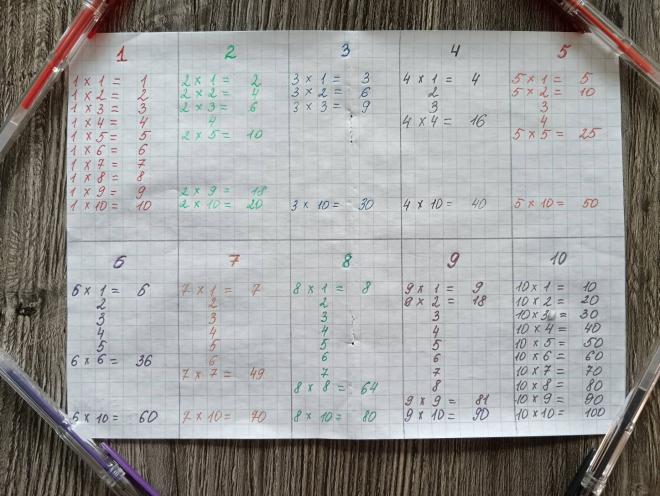 1
1 × 1 = 1
1 × 2 = 2
1 × 3 = 3
1 × 4 = 4
1 × 5 = 5
1 × 6 = 6
1 × 7 = 7
1 × 8 = 8
1 × 9 = 9
1 × 10 = 10
2
2 × 1 = 2
2 × 2 = 4
2 × 3 = 6
4
2 × 5 = 10
2 × 9 = 18
2 × 10 = 20
3
3 × 1 = 3
3 × 2 = 6
3 × 3 = 9
3 × 10 = 30
4
4 × 1 = 4
2
3
4 × 4 = 16
4 × 10 = 40
5
5 × 1 = 5
5 × 2 = 10
3
4
5 × 5 = 25
5 × 10 = 50
6
6 × 1 = 6
2
3
4
5
6 × 6 = 36
6 × 10 = 60
7
7 × 1 = 7
2
3
4
5
6
7 × 7 = 49
7 × 10 = 70
8
8 × 1 = 8
2
3
4
5
6
7
8 × 8 = 64
8 × 10 = 80
9
9 × 1 = 9
9 × 2 = 18
3
4
5
6
7
8
9 × 9 = 81
9 × 10 = 90
10
10 × 1 = 10
10 × 2 = 20
10 × 3 = 30
10 × 4 = 40
10 × 5 = 50
10 × 6 = 60
10 × 7 = 70
10 × 8 = 80
10 × 9 = 90
10 × 10 = 100